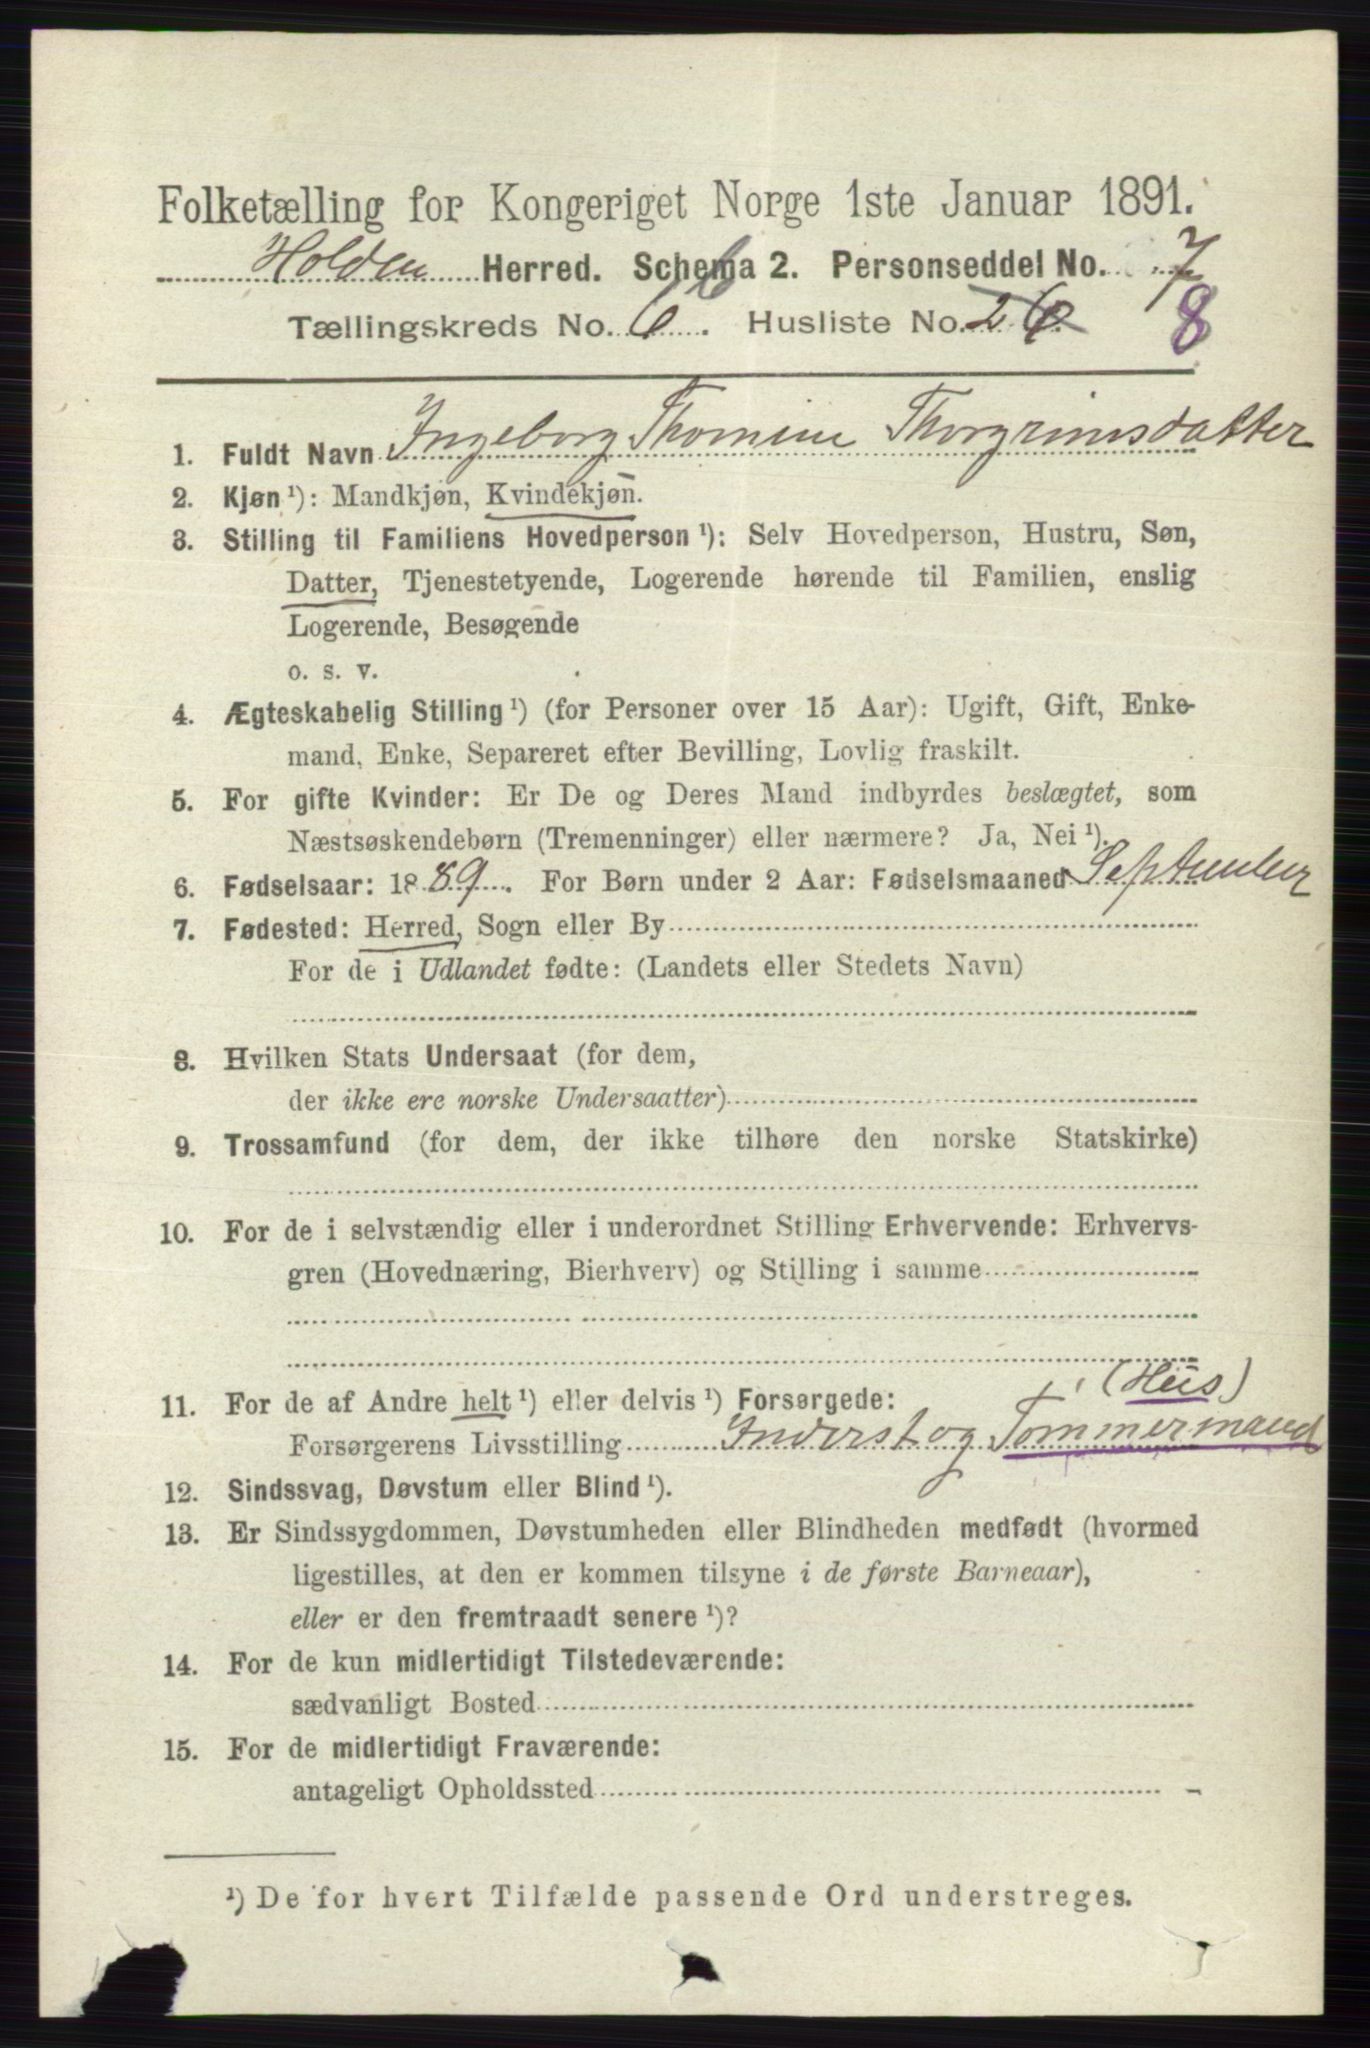 Folketælling for Kongeriget Norge 1ste Januar 1891.
Holden Herred. Schema 2. Personseddel No. 7
Tællingskreds No. 6 6. Husliste No. 26 8
1. Fuldt Navn Ingeborg Thomine Thorgrimsdatter
2. Kjøn ¹): Mandkjøn, Kvindekjøn.
3. Stilling til Familiens Hovedperson ¹): Selv Hovedperson, Hustru, Søn,
Datter, Tjenestetyende, Logerende hørende til Familien, enslig
Logerende, Besøgende
o. s. v.
4. Ægteskabelig Stilling ¹) (for Personer over 15 Aar): Ugift, Gift, Enke-
mand, Enke, Separeret efter Bevilling, Lovlig fraskilt.
5. For gifte Kvinder: Er De og Deres Mand indbyrdes beslægtet, som
Næstsøskendebørn (Tremenninger) eller nærmere? Ja, Nei ¹).
6. Fødselsaar: 1889. For Børn under 2 Aar: Fødselsmaaned September
7. Fødested: Herred, Sogn eller By
For de i Udlandet fødte: (Landets eller Stedets Navn)
8. Hvilken Stats Undersaat (for dem,
der ikke ere norske Undersaatter)
9. Trossamfund (for dem, der ikke tilhøre den norske Statskirke)
10. For de i selvstændig eller i underordnet Stilling Erhvervende: Erhvervs-
gren (Hovednæring, Bierhverv) og Stilling i samme
(Hus)
11. For de af Andre helt ¹) eller delvis ¹) Forsørgede:
Forsørgerens Livsstilling Inderst og Tømmermand
12. Sindssvag, Døvstum eller Blind ¹).
13. Er Sindssygdommen, Døvstumheden eller Blindheden medfødt (hvormed
ligestilles, at den er kommen tilsyne i de første Barneaar),
eller er den fremtraadt senere ¹)?
14. For de kun midlertidigt Tilstedeværende:
sædvanligt Bosted
15. For de midlertidigt Fraværende:
antageligt Opholdssted
¹) De for hvert Tilfælde passende Ord understreges.